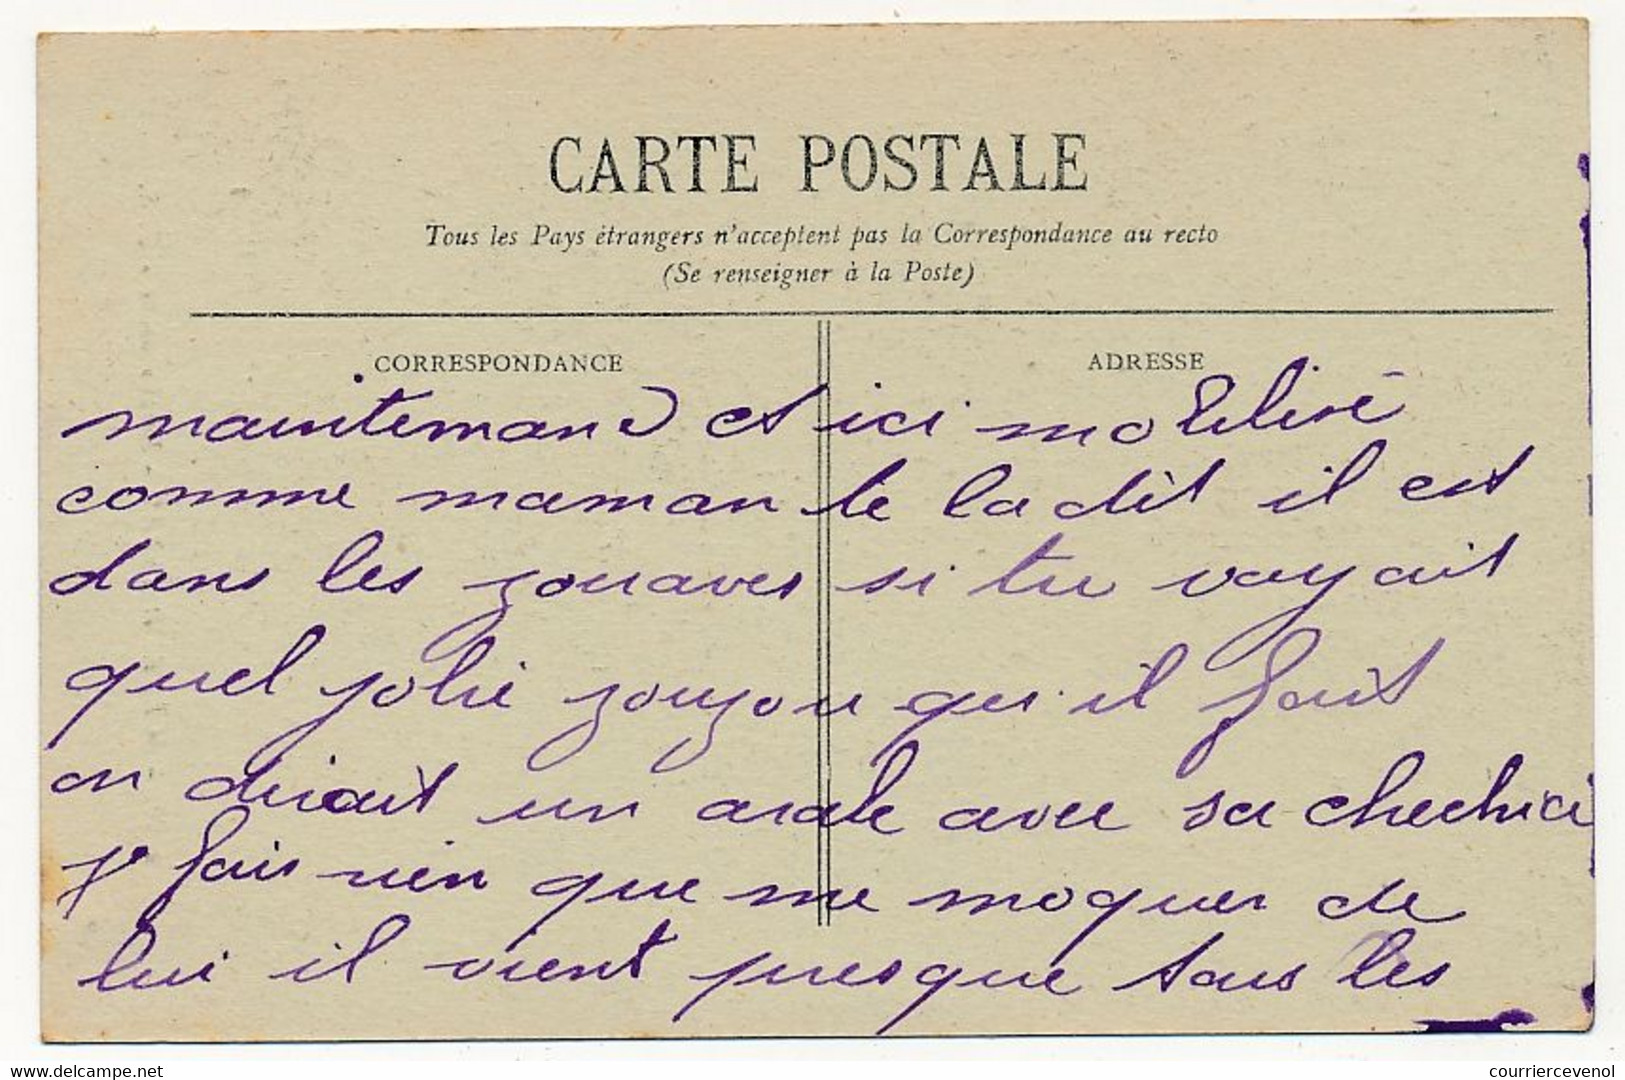 CARTE POSTALE
Tous les Pays étrangers n'acceptent pas la Correspondance au recto
(Se renseigner à la Poste)
CORRESPONDANCE
ADRESSE
maintenand et ici mobilisé
comme maman te la dit il est
dans les zouaves si tu voyait
quel jolie zouzou qu'il fait
on dirait un arabe avec sa chechia
j' fais rien que me moquer de
lui il vient presque tous les
courriercevenol